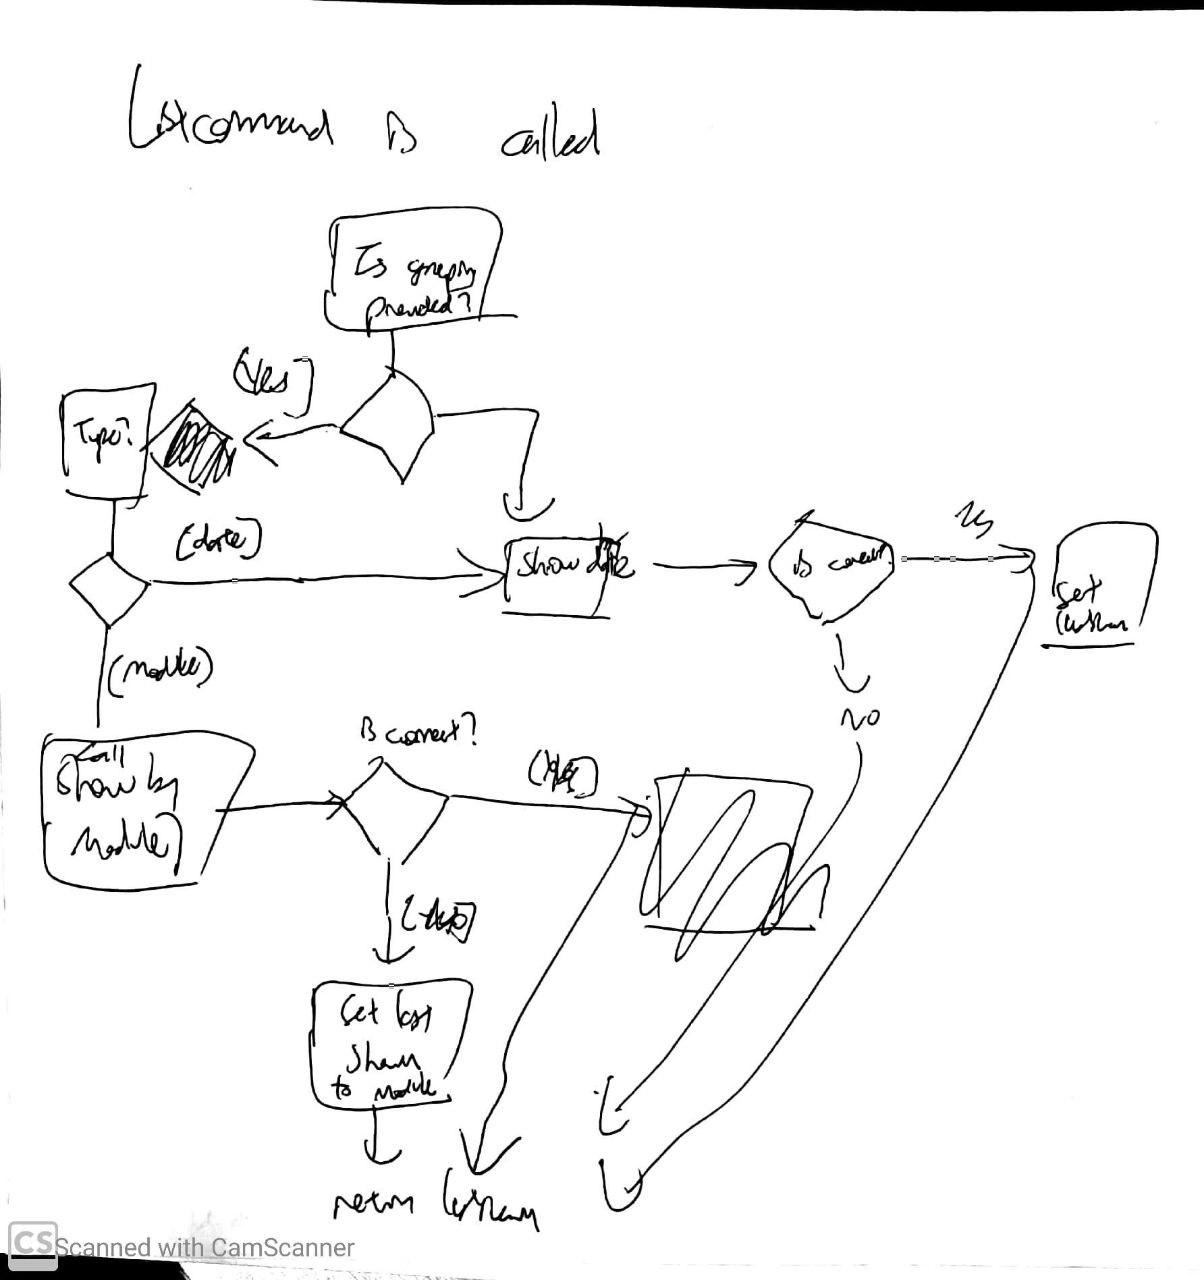 Listcommand is called
Is graph
provided?
[Yes]
Type?
[date]
Show date
Is correct?
Yes
Set
lastShown
[module]
NO
Call
Show by
Module
Is correct?
[No]
Set last
Shown
to module
return lastShown
CS Scanned with CamScanner